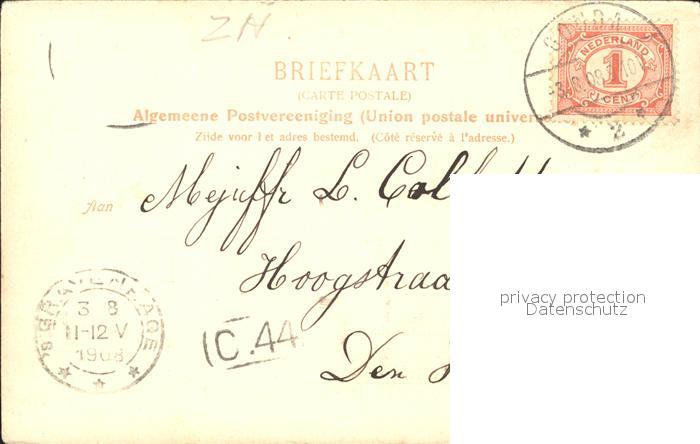 ZH
BRIEFKAART
(CARTE POSTALE)
Algemeene Postvereeniging (Union postale univer
Zijde voor het adres bestemd. (Côté réservé à l'adresse.)
GOUDA
NEDERLAND
1
CENT
2
Aan
Mejuffr L.
Hoogstraa
Den
'S GRAVENHAGE
3 8
11-12 V
1908
C.44
privacy protection
Datenschutz